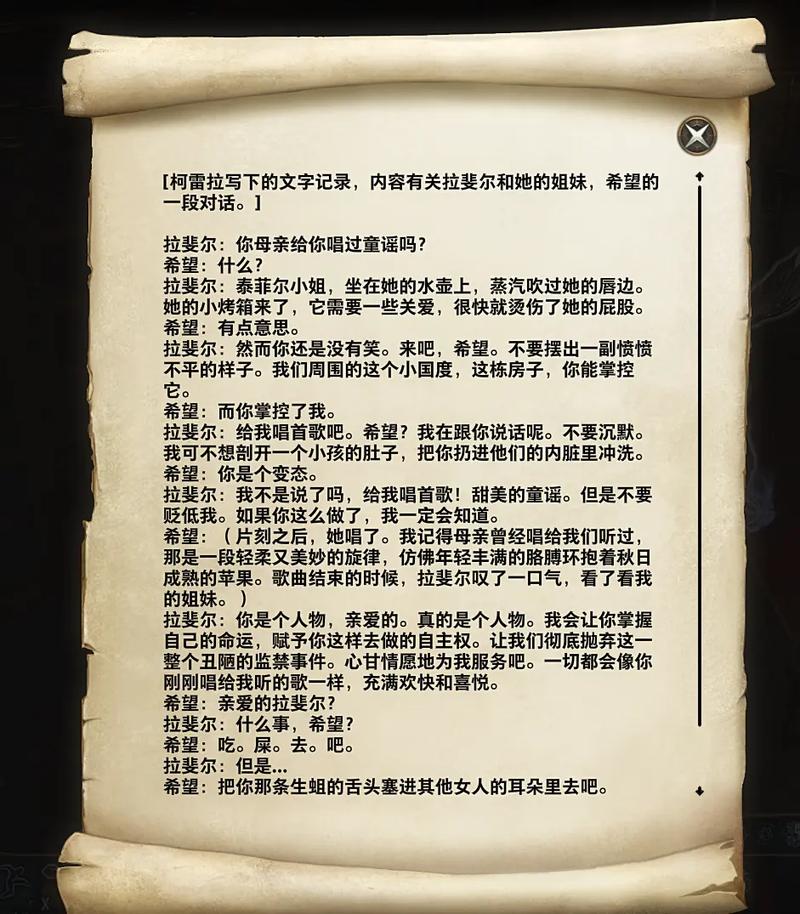 [柯雷拉写下的文字记录，内容有关拉斐尔和她的姐妹，希望的
一段对话。]
拉斐尔：你母亲给你唱过童谣吗？
希望：什么？
拉斐尔：泰菲尔小姐，坐在她的水壶上，蒸汽吹过她的唇边。
她的小烤箱来了，它需要一些关爱，很快就烫伤了她的屁股。
希望：有点意思。
拉斐尔：然而你还是没有笑。来吧，希望。不要摆出一副愤愤
不平的样子。我们周围的这个小国度，这栋房子，你能掌控
它。
希望：而你掌控了我。
拉斐尔：给我唱首歌吧。希望？我在跟你说话呢。不要沉默。
我可不想剖开一个小孩的肚子，把你扔进他们的内脏里冲洗。
希望：你是个变态。
拉斐尔：我不是说了吗，给我唱首歌！甜美的童谣。但是不要
贬低我。如果你这么做了，我一定会知道。
希望：（片刻之后，她唱了。我记得母亲曾经唱给我们听过，
那是一段轻柔又美妙的旋律，仿佛年轻丰满的胳膊环抱着秋日
成熟的苹果。歌曲结束的时候，拉斐尔叹了一口气，看了看我
的姐妹。）
拉斐尔：你是个人物，亲爱的。真的是个人物。我会让你掌握
自己的命运，赋予你这样去做的自主权。让我们彻底抛弃这一
整个丑陋的监禁事件。心甘情愿地为我服务吧。一切都会像你
刚刚唱给我听的歌一样，充满欢快和喜悦。
希望：亲爱的拉斐尔？
拉斐尔：什么事，希望？
希望：吃。屎。去。吧。
拉斐尔：但是...
希望：把你那条生蛆的舌头塞进其他女人的耳朵里去吧。